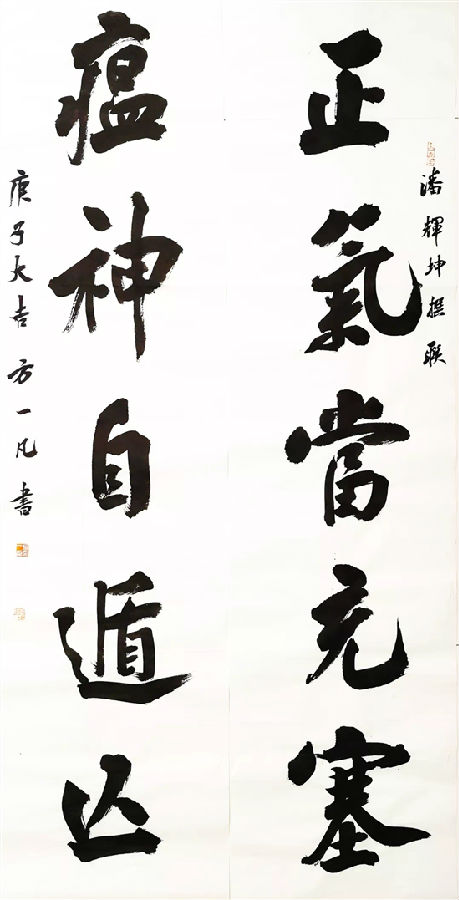 潘輝坤撰聯
正氣當充塞
瘟神自遁亾
庚子大吉 方一凡 書